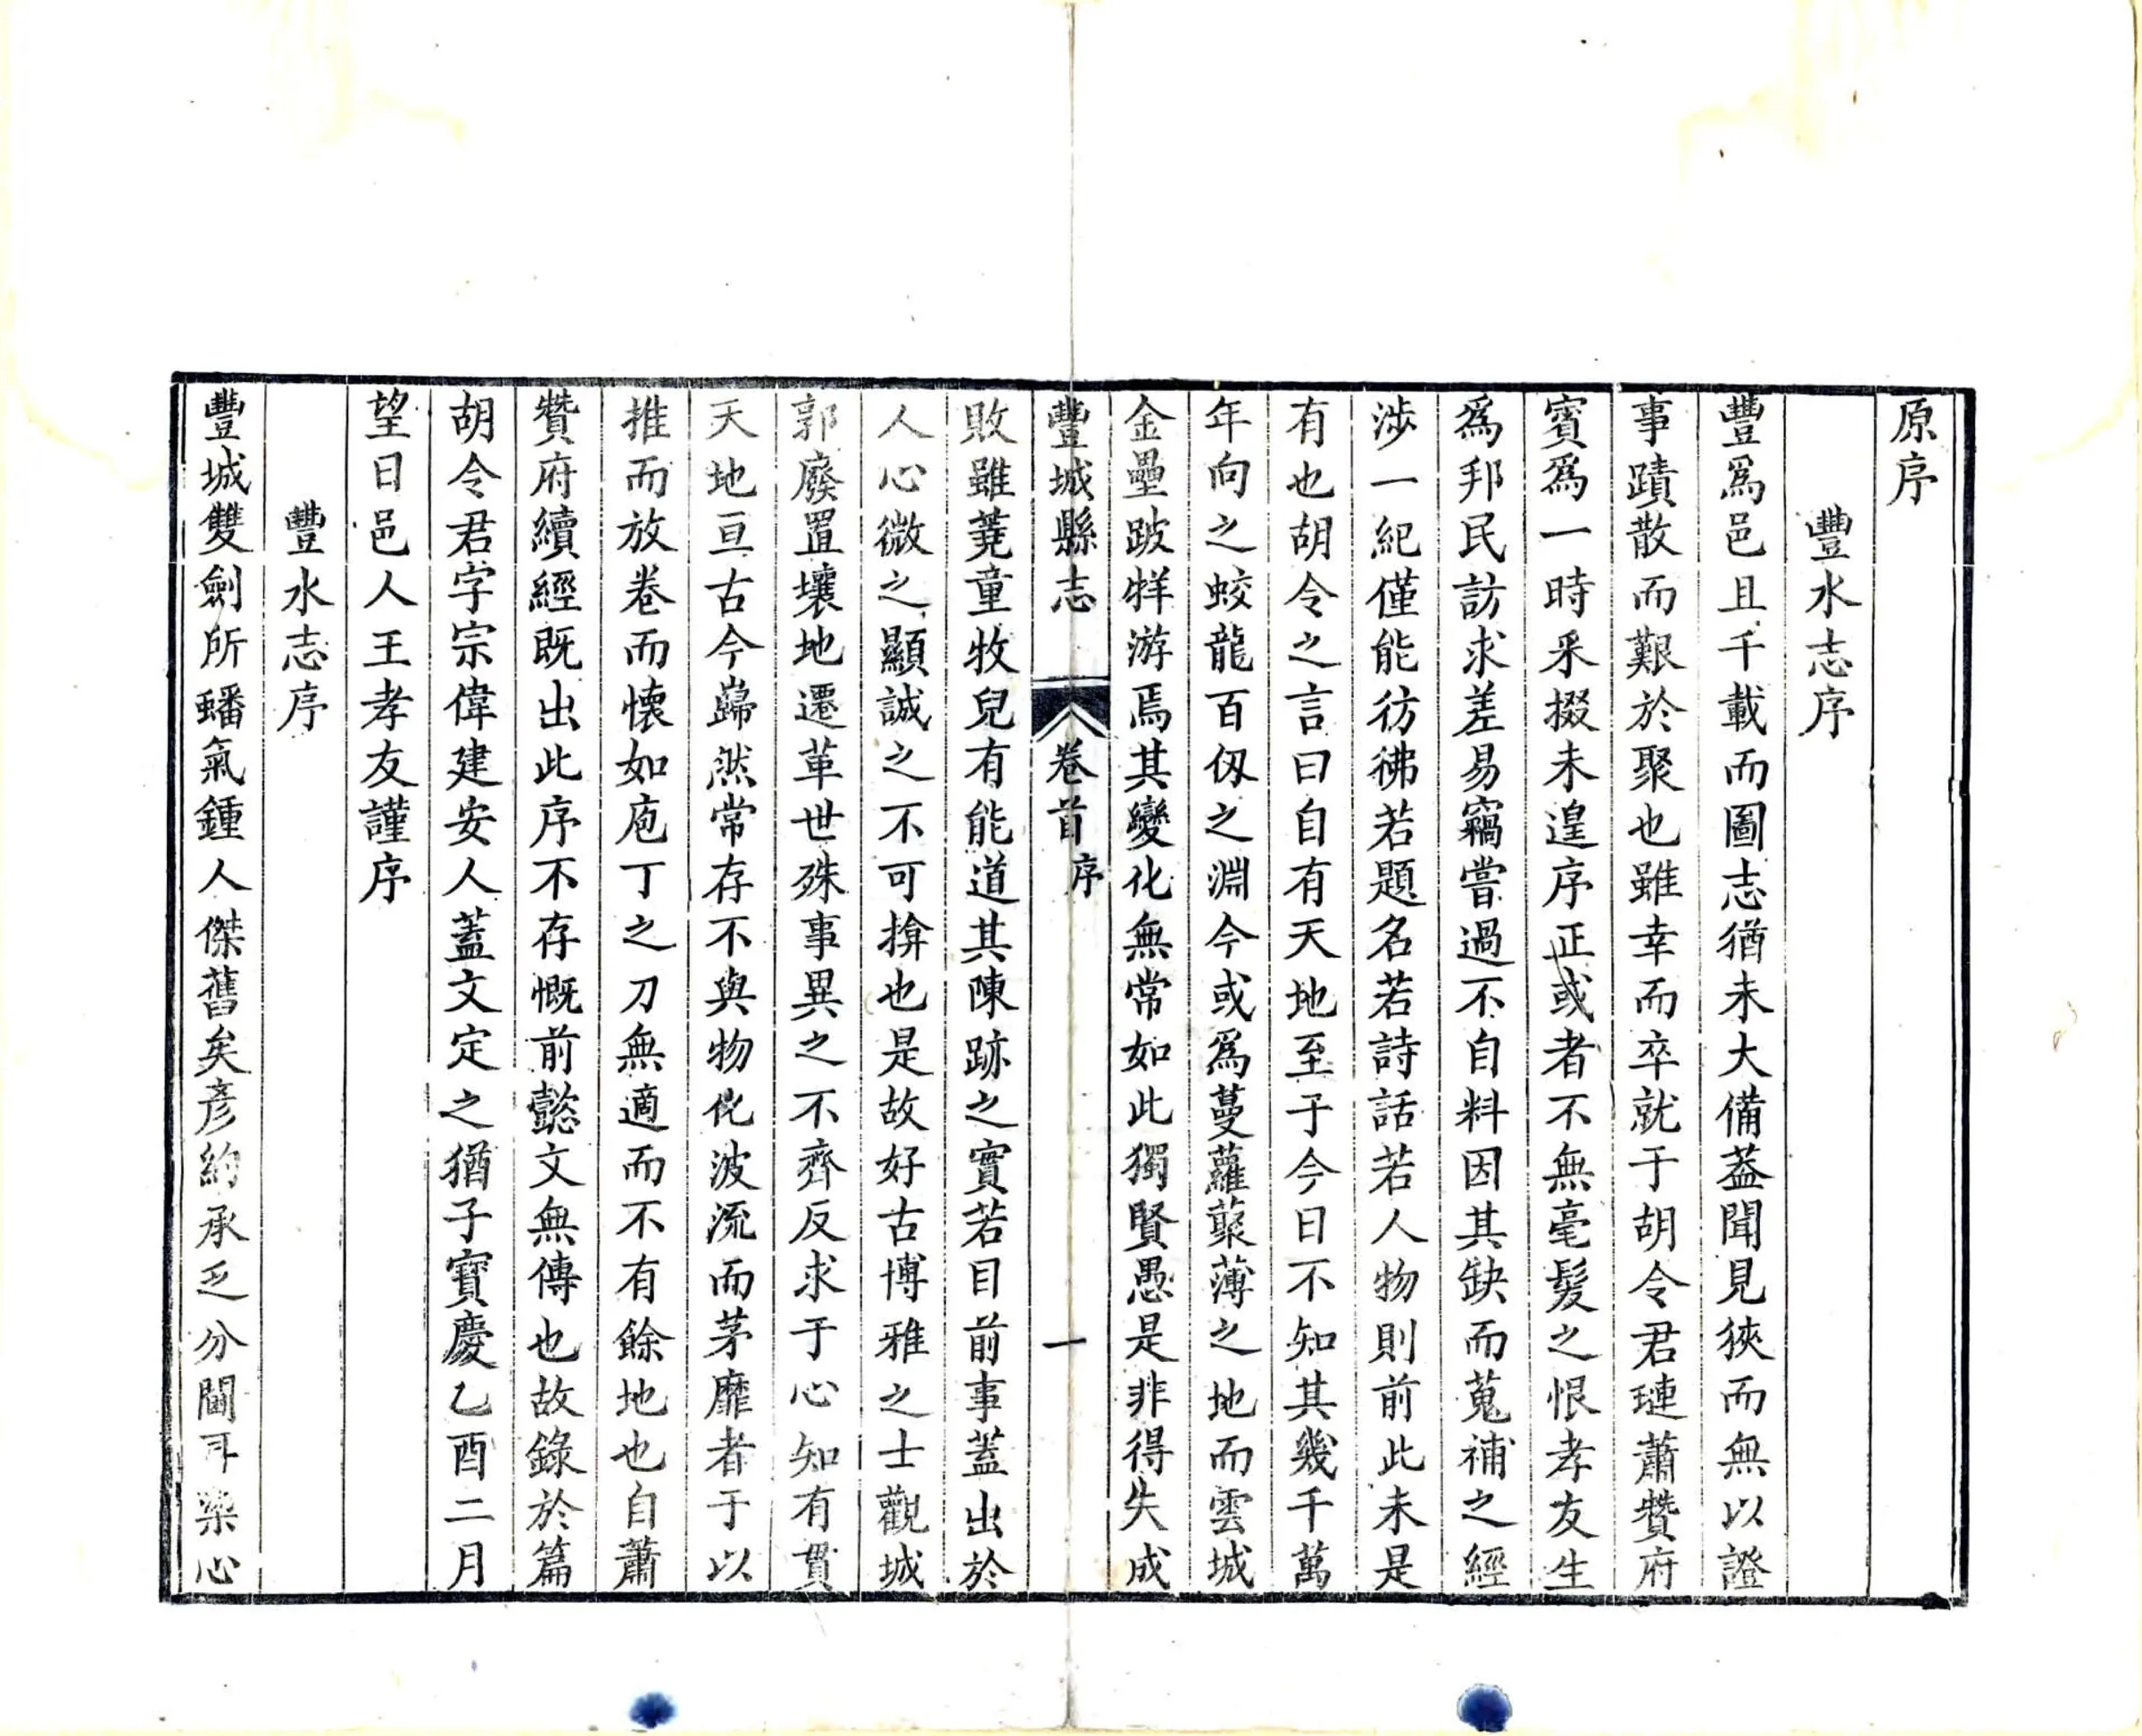 原序
豐水志序
豐爲邑且千載而圖志猶未大備葢聞見狹而無以證
事蹟散而艱於聚也雖幸而卒就于胡令君璉蕭贊府
賓爲一時釆掇未遑序正或者不無毫髮之恨孝友生
爲邦民訪求差易竊嘗過不自料因其缺而蒐補之經
涉一紀僅能彷彿若題名若詩話若人物則前此未是
有也胡令之言曰自有天地至于今日不知其幾千萬
年向之蛟龍百仭之淵今或爲蔓蘿藂薄之地而雲城
金壘跛牂游焉其變化無常如此獨賢愚是非得失成
豐城縣志
卷首
序
一
敗雖蕘童牧兒有能道其陳跡之實若目前事蓋出於
人心微之顯誠之不可揜也是故好古博雅之士觀城
郭廢置壤地遷革世殊事異之不齊反求于心知有貫
天地亘古今巋然常存不與物化波流而茅靡者于以
推而放卷而懷如庖丁之刀無適而不有餘地也自蕭
贊府續經既出此序不存慨前懿文無傳也故錄於篇
胡令君字宗偉建安人蓋文定之猶子寶慶乙酉二月
望日邑人王孝友謹序
豐水志序
豐城雙劍所蟠氣鍾人傑舊矣彥約承乏分閫耳染心